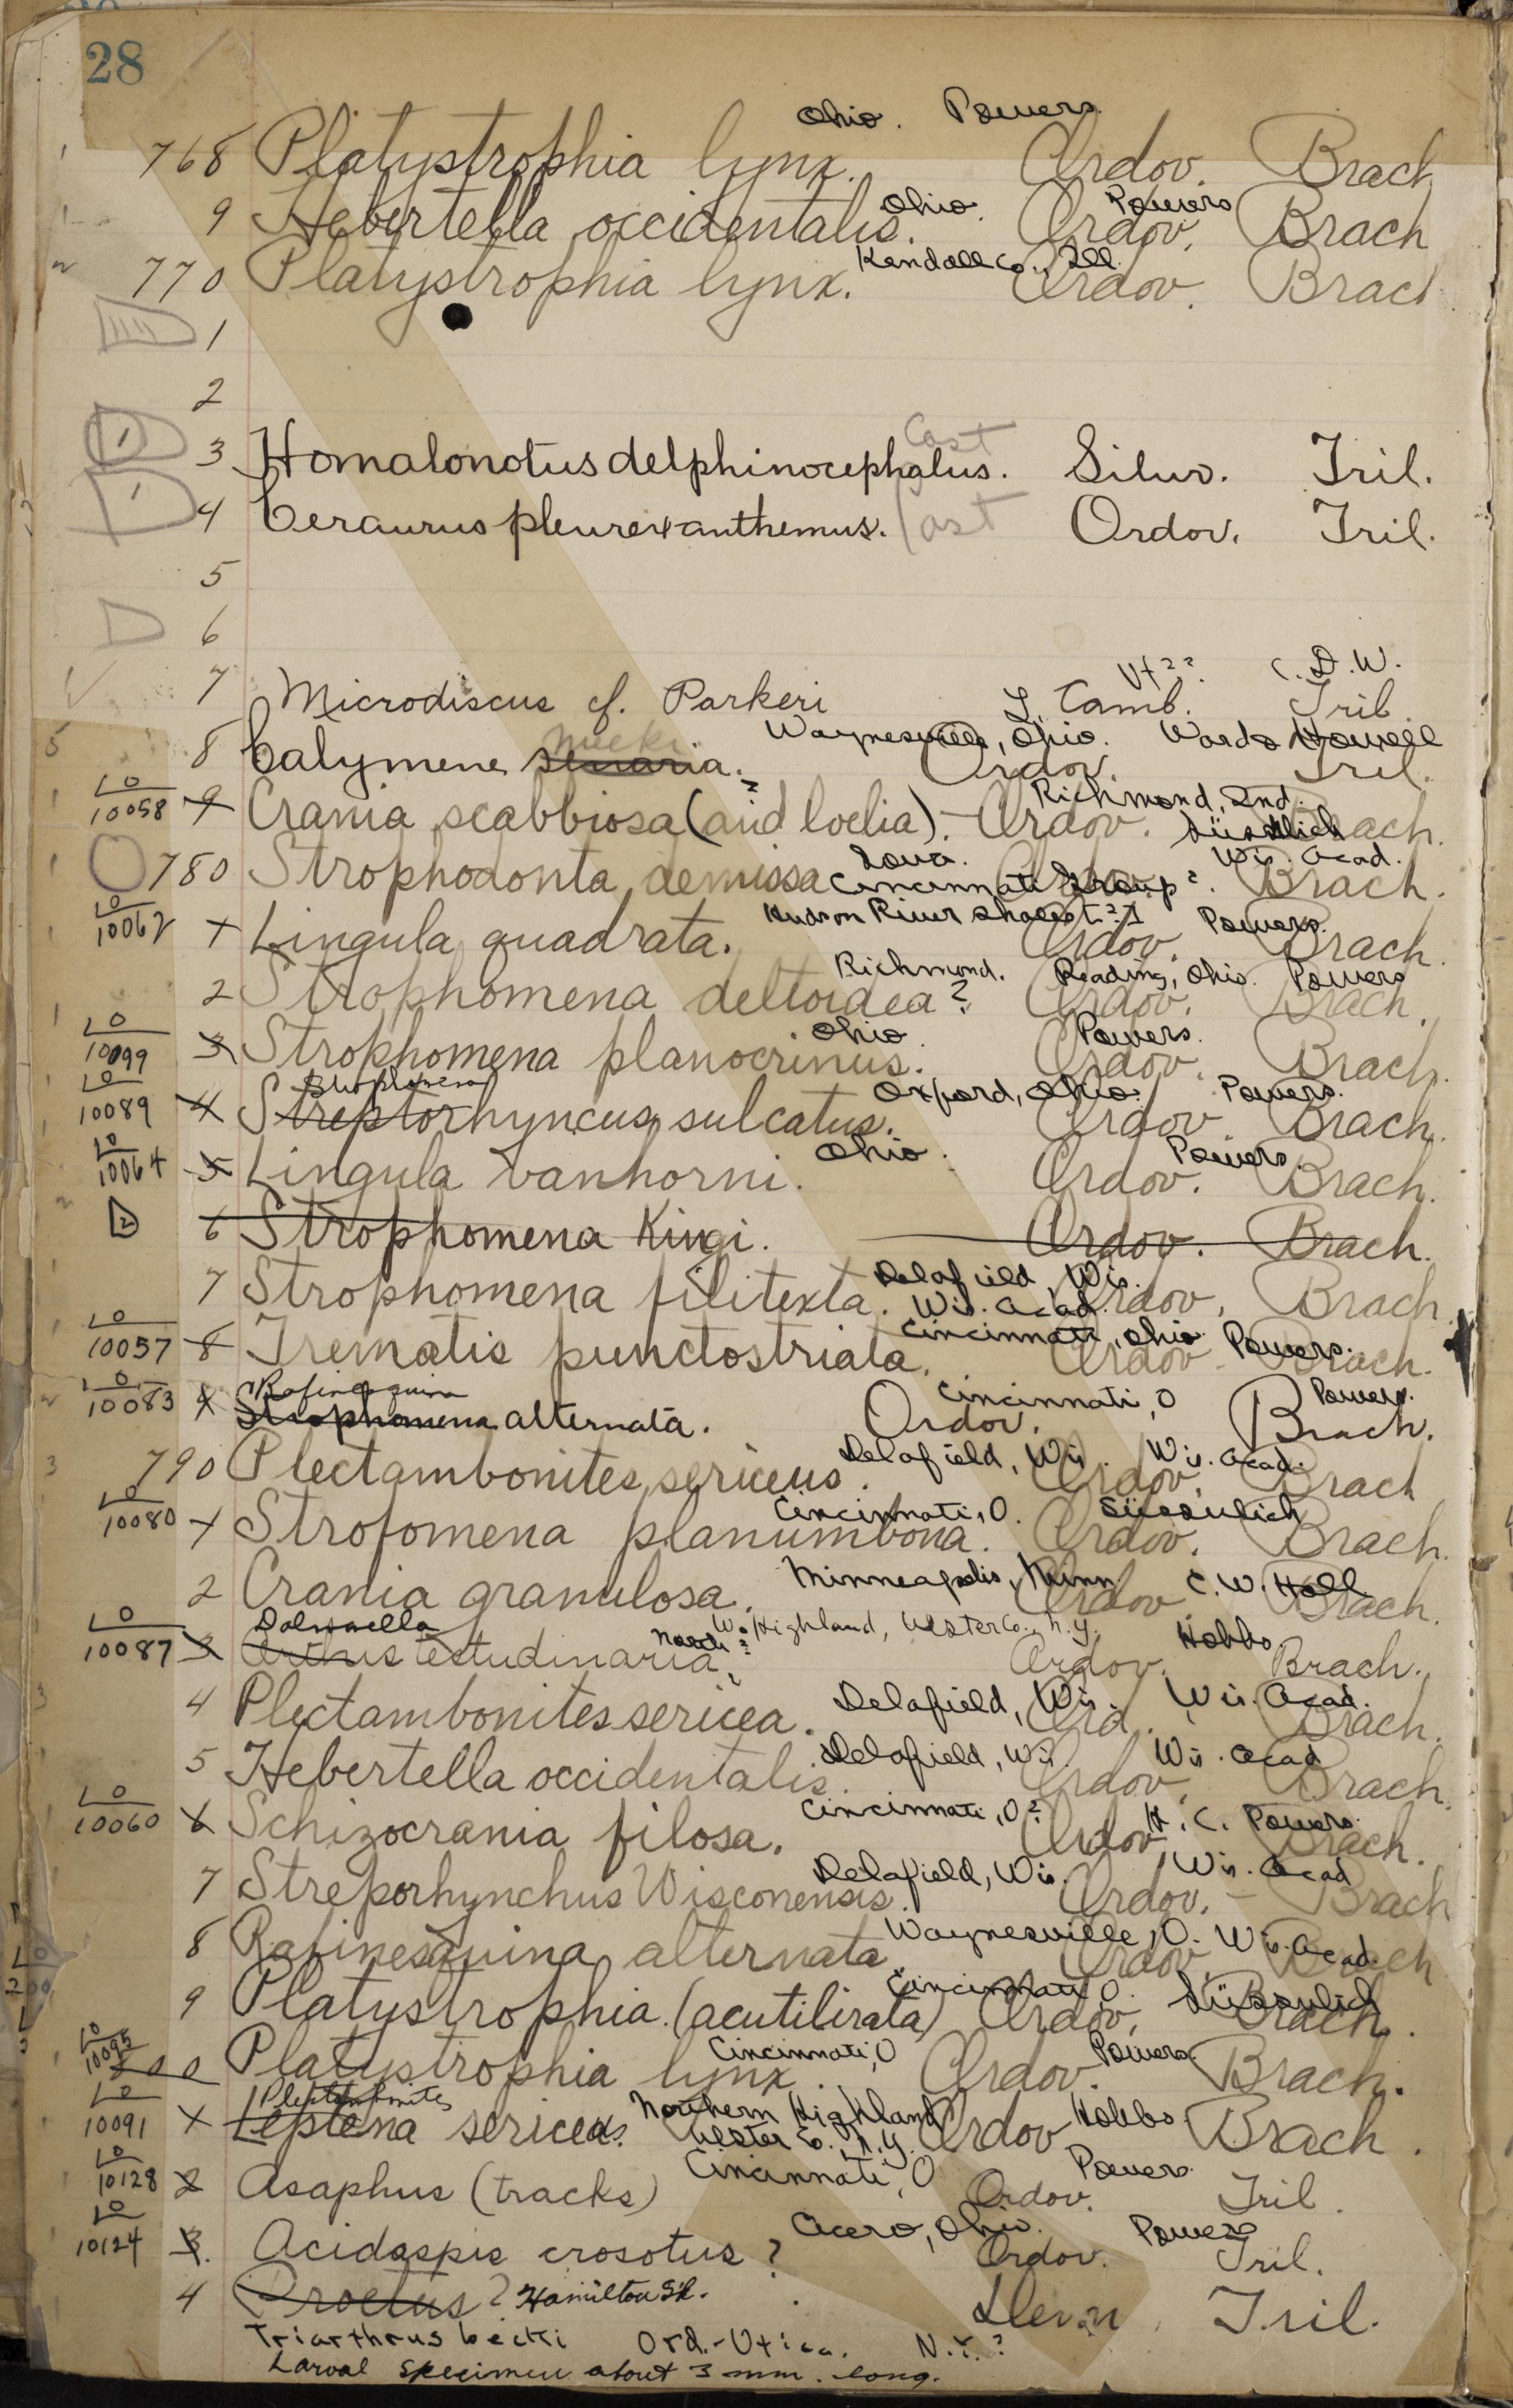 28
Ohio. Powers.
1 768 Platystrophia lynx. Ordov. Brach
Ohio. Powers
1 9 Hebertella occidentalis. Ordov. Brach
Kendall Co., Ill.
2 770 Platystrophia lynx. Ordov. Brach
1
2
Cast
1 3 Homalonotus delphinocephalus. Silur. Tril.
1 4 Ceraurus pleurexanthemus. Cast Ordov. Tril.
5
6
Vt?? C. D. W.
7 Microdiscus cf. Parkeri L. Camb. Trib.
meeki Waynesville, Ohio. Wards Howell
5 8 Calymene senaria. Ordov. Tril.
LO Richmond, Ind.
1 10058 9 Crania scabbiosa (and loelia). - Ordov. Brach.
Iowa. Wis. Acad.
1 780 Strophodonta demissa Cincinnati Group?. Brach.
LO Hudson River Shales Powers.
1 10062 1 Lingula quadrata. Ordov. Brach.
Richmond. Reading, Ohio. Powers
1 2 Strophomena deltoidea? Ordov. Brach.
LO Ohio. Powers.
1 10099 3 Strophomena planocrinus. Ordov. Brach.
LO Strophomena Oxford, Ohio. Powers.
1 10089 4 Streptorhyncus sulcatus. Ordov. Brach.
LO Ohio. Powers.
1 10064 5 Lingula vanhorni. Ordov. Brach.
2 6 Strophomena Kingi. Ordov. Brach.
Delafield, Wis.
7 Strophomena filitexta. Wis. Acad. Ordov. Brach
LO Cincinnati, Ohio Powers.
1 10057 8 Trematis punctostriata. Ordov. Brach.
LO Rafinesquina Cincinnati, O Powers.
2 10083 9 Strophomena alternata. Ordov. Brach.
Delafield, Wis. Wis. Acad.
3 790 Plectambonites sericeus. Ordov. Brach
LO Cincinnati, O. Süsswlich
1 10080 1 Strofomena planumbona. Ordov. Brach.
Minneapolis, Minn C. W. Hall
2 Crania granulosa. Ordov Brach.
LO Dalmanella Highland, Ulster Co., N.Y. Hobbs.
1 10087 3 Orthis testudinaria. North? Ordov. Brach.
Delafield, Wis. Wis. Acad.
3 4 Plectambonites sericea. Ord. Brach.
Delafield, Wis. Wis. Acad
5 Hebertella occidentalis. Ordov. Brach.
LO Cincinnati, O? H. C. Powers.
1 10060 6 Schizocrania filosa. Ordov Brach.
Delafield, Wis. Wis. Acad
7 Streporhynchus Wisconensis. Ordov. - Brach
Waynesville, O. Wis. Acad.
8 Rafinesquina alternata Ordov. Brach
Cincinnati, O.
9 Platystrophia. (acutilirata) Ordov. Brach.
LO
10095 Cincinnati, O Powers
800 Platystrophia lynx. Ordov. Brach.
LO Northern Highland Hobbs
10091 1 Leptena sericea. Ulster Co., N.Y. Ordov Brach.
LO Cincinnati, O Powers.
10128 2 Asaphus (tracks) Ordov. Tril.
LO Ohio. Powers
10124 3. Acidaspis crosotus? Ordov. Tril.
4 Proetus? Hamilton Sh. Devon. Tril.
Triarthrus becki Ord.-Utica. N.Y.?
Larval specimen about 3 mm. long.